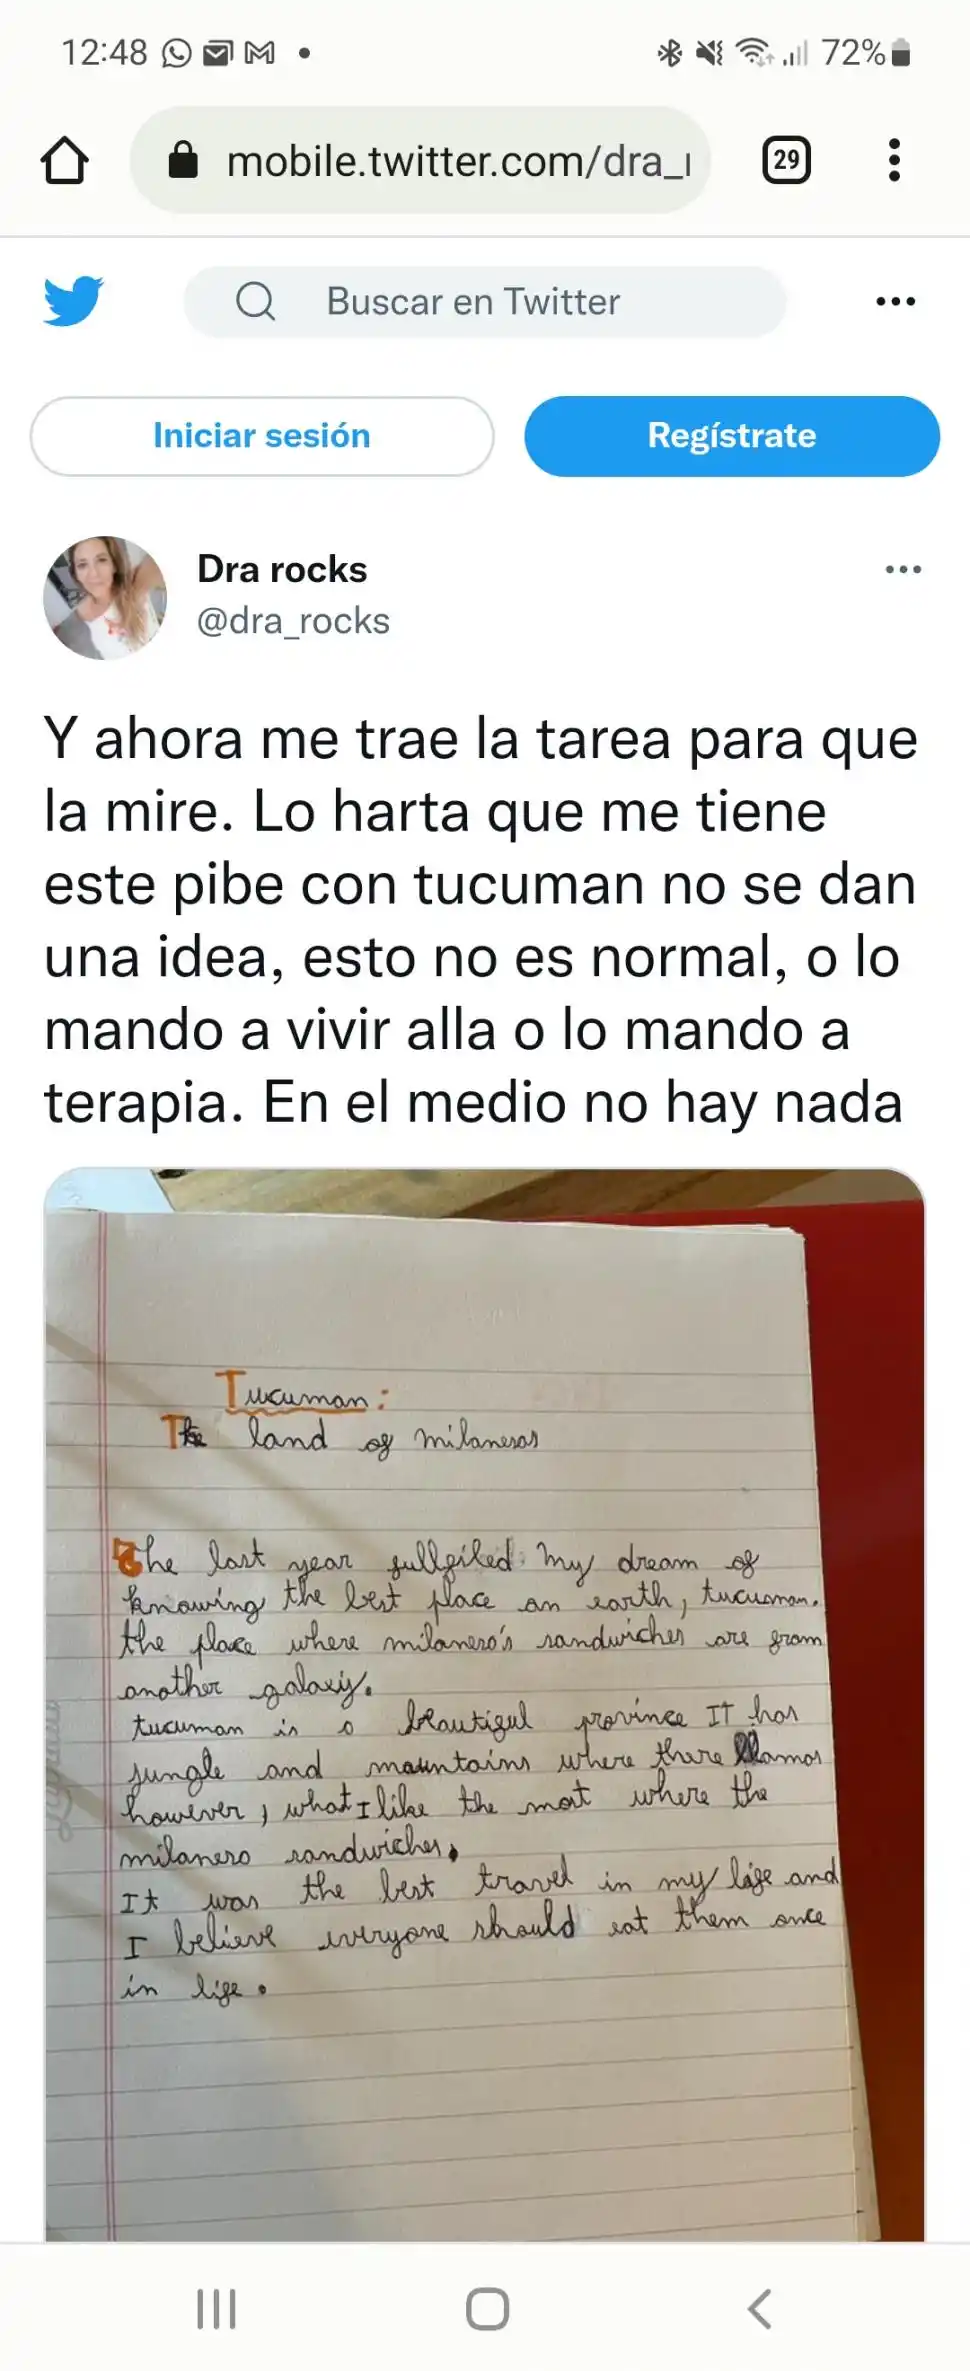 12:48
72%
mobile.twitter.com/dra_r
29
Buscar en Twitter
Iniciar sesión
Regístrate
Dra rocks
@dra_rocks
Y ahora me trae la tarea para que
la mire. Lo harta que me tiene
este pibe con tucuman no se dan
una idea, esto no es normal, o lo
mando a vivir alla o lo mando a
terapia. En el medio no hay nada
Tucuman:
The land of milanesas
The last year fullfiled my dream of
knowing the best place on earth, tucuman.
the place where milaneso's sandwiches are from
another galaxy.
tucuman is a beautiful province IT has
jungle and mountains where there llamas
however, what I like the most where the
milaneso sandwiches.
It was the best travel in my life and
I believe everyone should eat them once
in life.